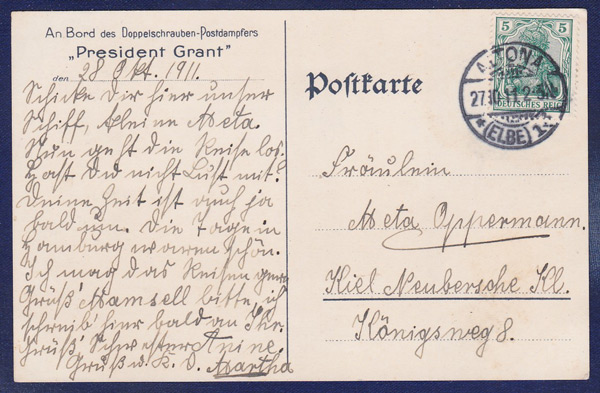 An Bord des Doppelschrauben-Postdampfers
„President Grant"
den 28 Okt. 1911.
Schicke Dir hier unser
Schiff, kleine Meta.
Nun geht die Reise los.
Hast Du nicht Lust mit?
Deine Zeit ist auch ja
bald um. Die Tage in
Hamburg waren schön.
Ich mag das Reisen gern
Grüß' Mamsell bitte, ich
schreib' hier bald an Ihr.
Grüß' Schwester Anine
Gruß u. K. D. Martha
Postkarte
5 5
DEUTSCHES REICH
ALTONA
27. 11 2-3N.
*(ELBE) 1
Fräulein
Meta Oppermann.
Kiel Neubersche Kl.
Königsweg 8.